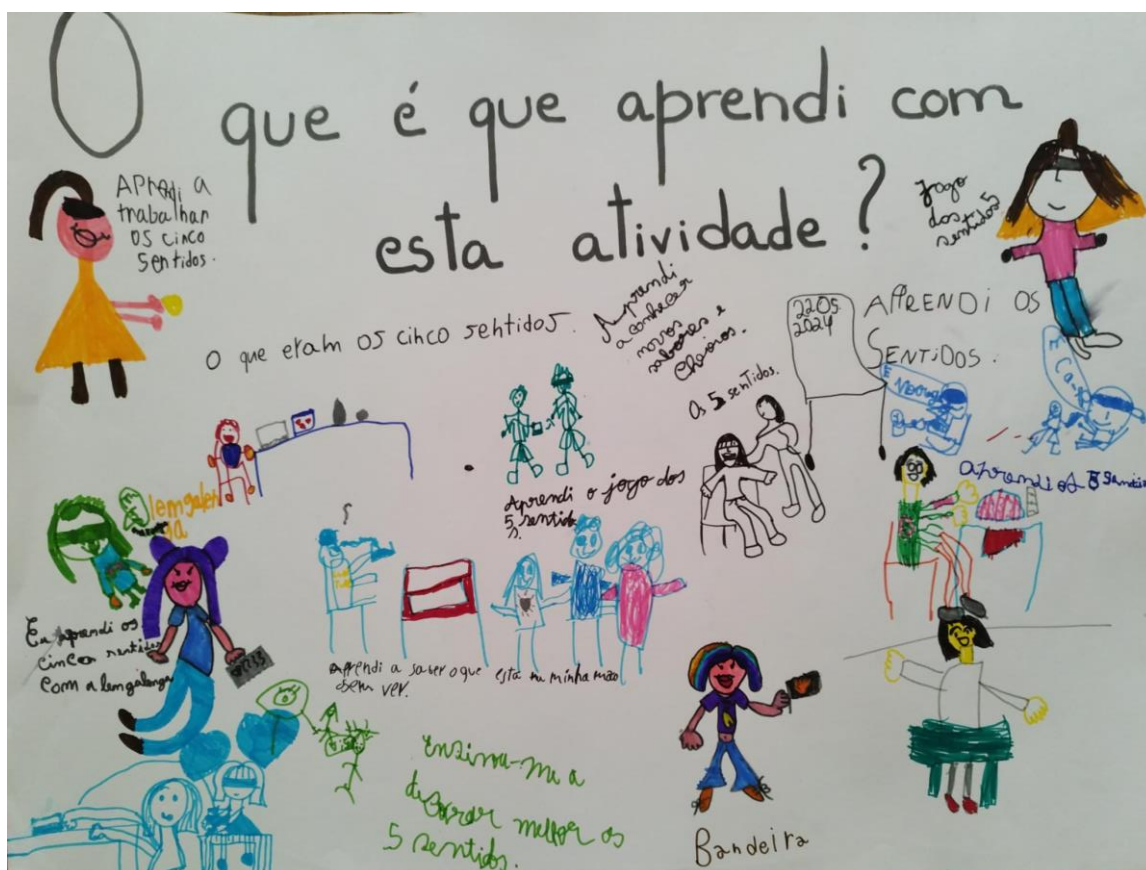 O que é que aprendi com
esta atividade?
APrendi a
trabalhar
os cinco
sentidos.
Jogo
dos 5
sentidos
O que eram os cinco sentidos.
Aprendi
a conhecer
novos
sabores e
Cheiros.
22 05
2024
APRENDI OS
SENTIDOS.
Os 5 sentidos.
Aprendi o jogo dos
5 sentido
s.
aprendi os 5 Sentid
lemgalen
ga
Eu aprendi os
cincos sentidos
com a lemgalenga
Aprendi a saber o que está na minha mão
sem ver.
Ensinou-me a
melhor os
5 sentidos.
Bandeira